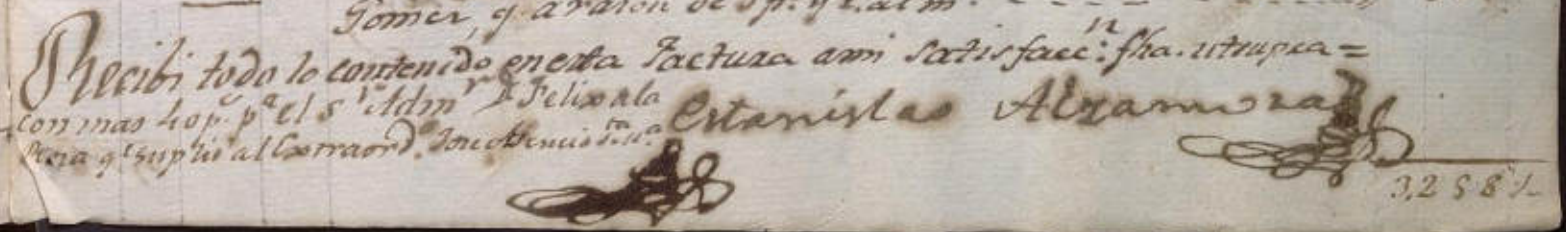 Gomez, q. a razon de
Recibi todo lo contenido en esta Factura a mi satisfacc.n fha. ut supra =
con mas 40 p.s p.a el S.r Adm.r D.n Felix ala
q.e suplio al Extraord.o Jose
Estanislao Alzamora
3,258